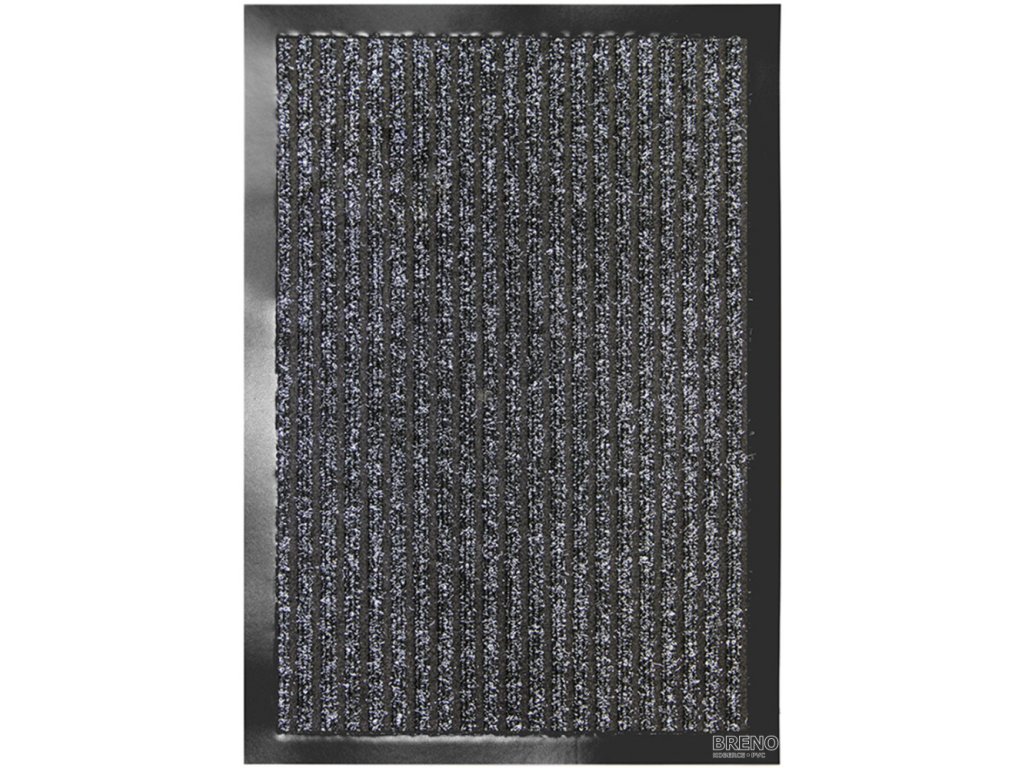 BRENO
KOBERCE • PVC